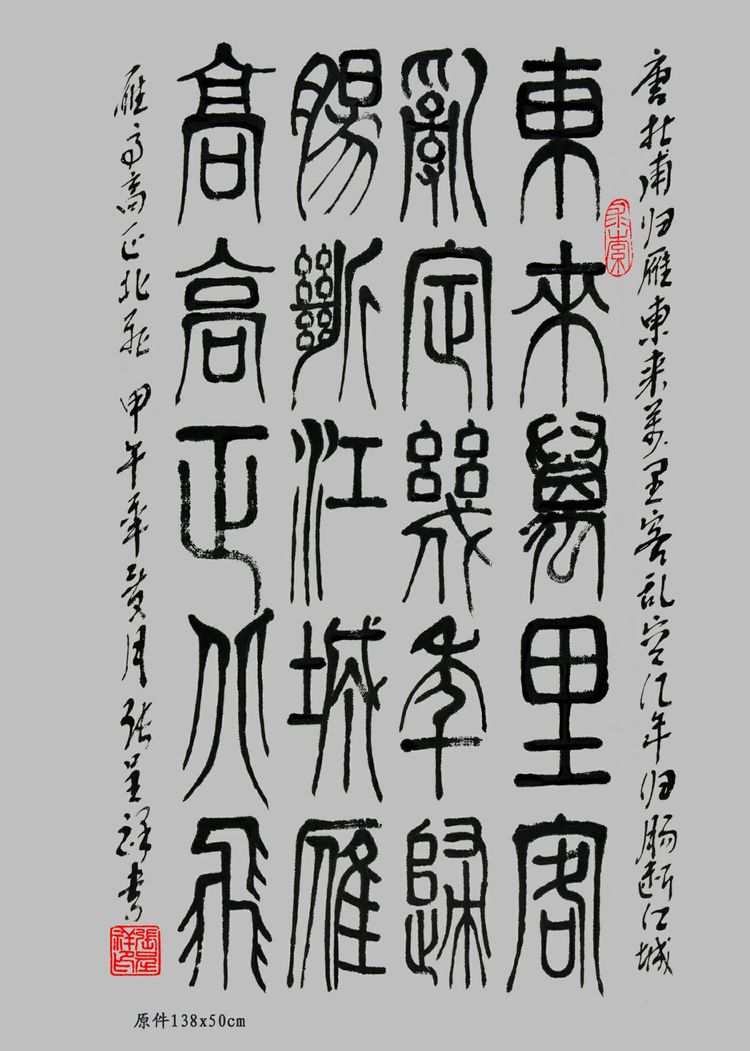 唐杜甫归雁東来萬里客乱定几年归肠断江城
求索
東來萬里客
亂定幾年歸
腸斷江城雁
高高正北飛
雁高高正北飛 甲午年月张呈祥書
張呈祥印
原件138x50cm